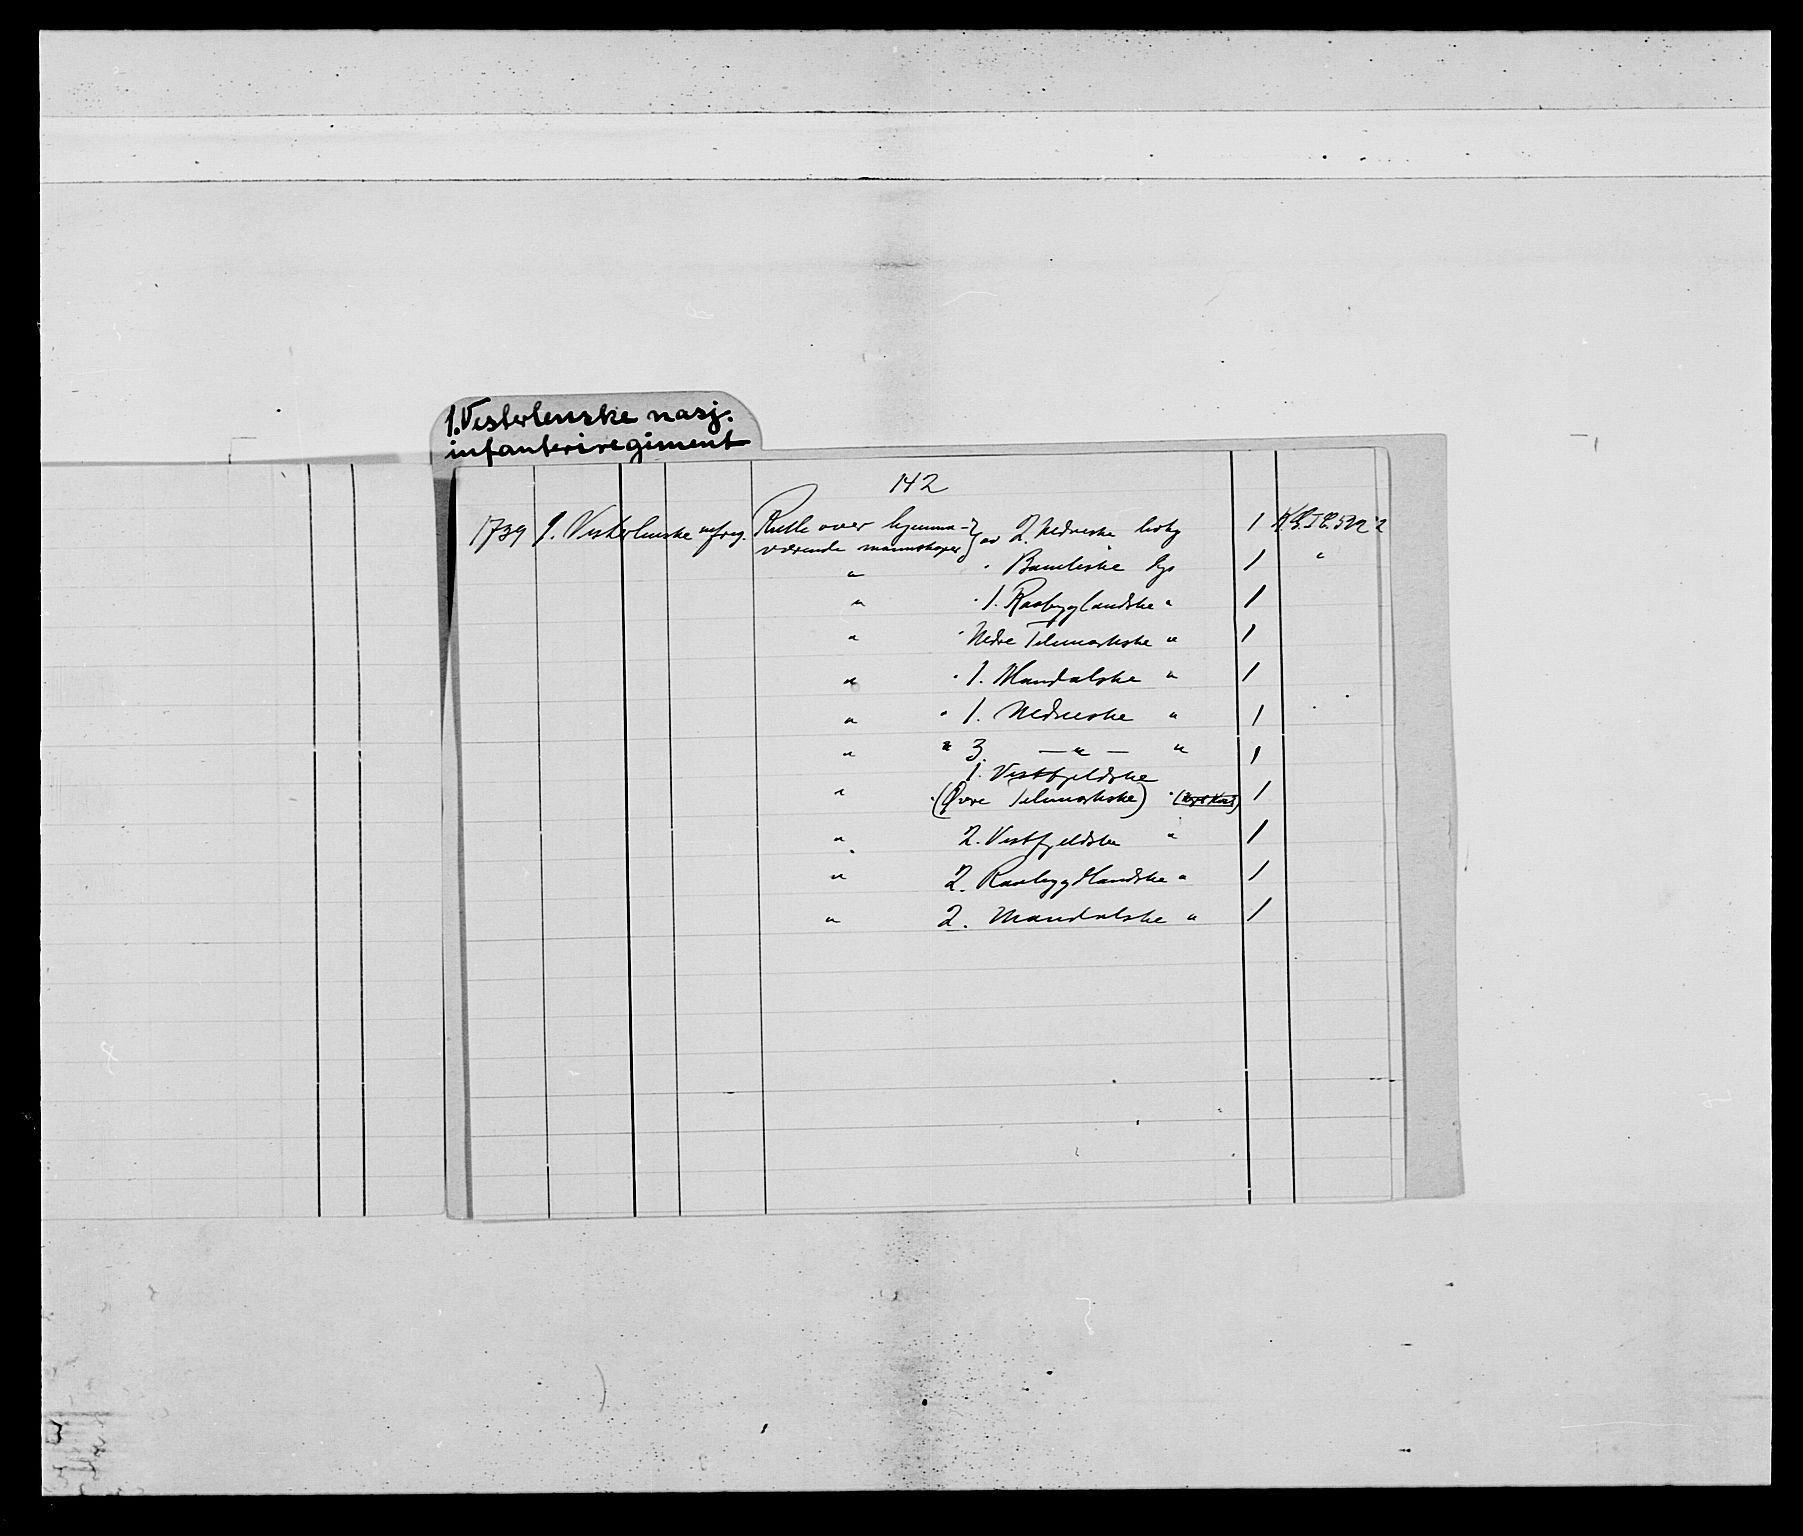 1. Vesterlenske nasj.
infanteriregiment
142
1739 1. Vesterlenske infreg. Rulle over hjemma-
værende mannskaper } av 2. Nedneske 1
" " Bambleske " 1 "
" " 1. Raabyggelandske " 1
" " Nedre Telemarkske " 1
" " 1. Mandalske " 1
" " 1. Nedneske " 1
" " 3. — " — " 1
1. Vestfjeldske
" " (Øvre Telemarkske) " 1
" 2. Vestfjeldske " 1
" 2. Raabyggelandske " 1
" 2. Mandalske " 1